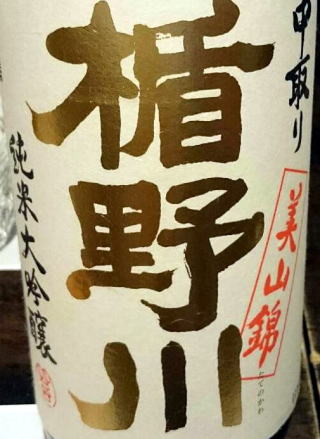 中取り
美山錦
楯野川
たてのかわ
純米大吟醸